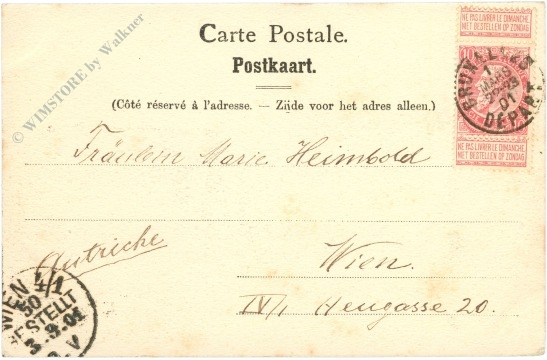 © WIMSTORE by Walkner
Carte Postale.
Postkaart.
(Côté réservé à l'adresse. — Zijde voor het adres alleen.)
NE PAS LIVRER LE DIMANCHE
NIET BESTELLEN OP ZONDAG
10
BRUXELLES
1
MARS
01
DEPART
NE PAS LIVRER LE DIMANCHE
NIET BESTELLEN OP ZONDAG
Fräulein Marie Heimbold
Autriche
Wien.
IV/1 Heugasse 20.
WIEN 4/1
50
BESTELLT
3.3.01
V